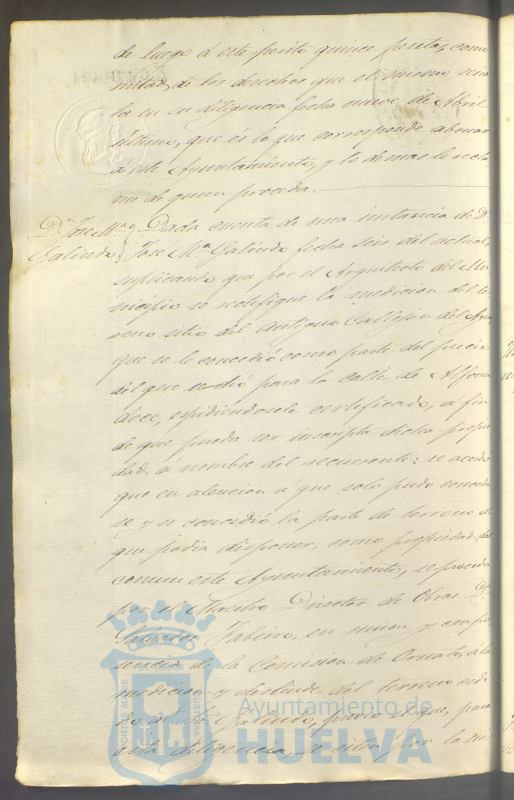 de luego á este perito quince pesetas, como
mitad de los derechos que el mismo
la en su diligencia fecha nueve de Abril
último, que es lo que corresponde abonar
á este Ayuntamiento, y lo demas lo recla
me de quien proceda.
Dn. José Ma. Dada cuenta de una instancia de Dn.
Galindo. José Ma. Galindo fecha seis del actual,
suplicando que por el Arquitecto del Mu
nicipio se rectifique la medicion del te
rreno sitio del antiguo Callejon del Agua
que se le concedió como parte del precio
del que cedió para la calle de Alfonso
doce, espidiendosele certificado, á fin
de que pueda ser inscripta dicha propie
dad á nombre del recurrente: se acordó
que en atencion á que solo pudo conceder
se y se concedió la parte de terreno de
que podia disponer, como propiedad del
comun este Ayuntamiento, se proceda
por el Maestro Director de Obras Dn.
Salvador, en union y con pre
sencia de la Comision de Ornato, á la
medicion y deslinde del terreno cedi
do al Sr. Galindo, previo el que, para
esta diligencia se por la
Ayuntamiento de
HUELVA